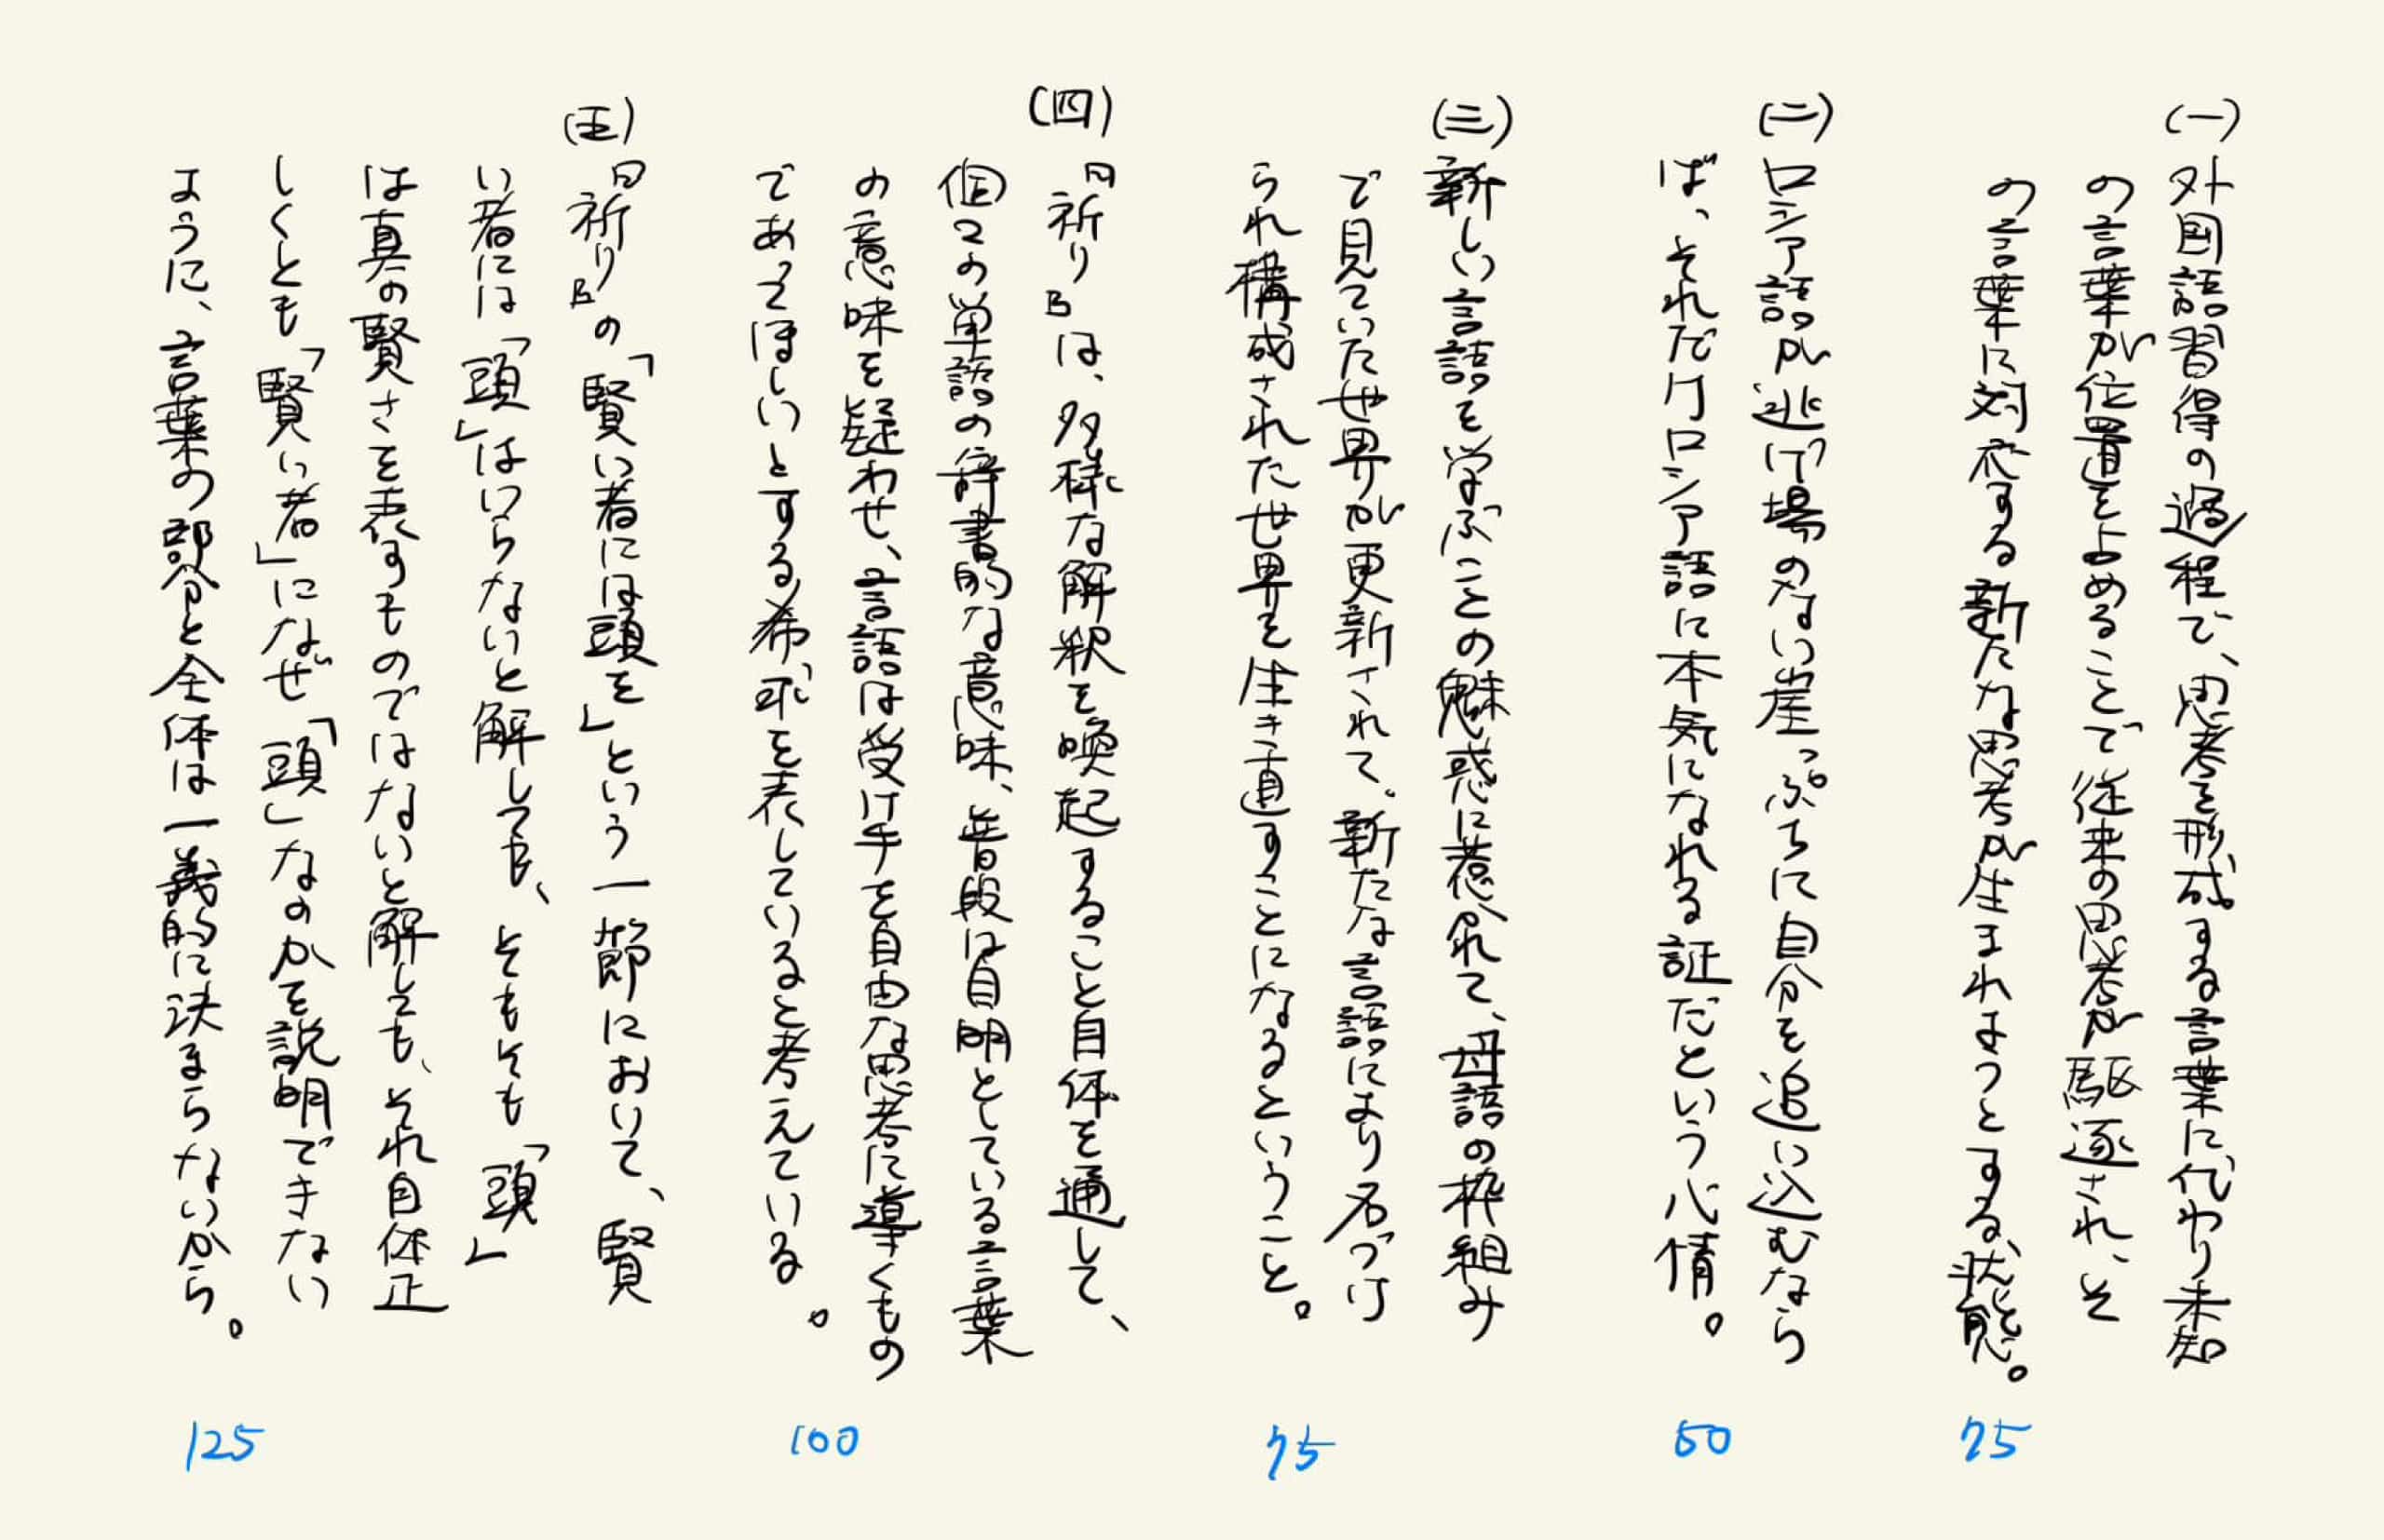 (一)外国語習得の過程で、思考を形成する言葉に代わり未知
の言葉が位置を占めることで従来の思考が駆逐され、そ
の言葉に対応する新たな思考が生まれようとする状態。
75
(二)ロシア語が逃げ場のない崖っぷちに自分を追い込むなら
ば、それだけロシア語に本気になれる証だという心情。
50
(三)新しい言語を学ぶことの魅惑に惹かれて、母語の枠組み
で見ていた世界が更新されて、新たな言語により名づけ
られ構成された世界を生き直すことになるということ。
75
(四)『祈り』は、多様な解釈を喚起すること自体を通して、
個々の単語の辞書的な意味、普段は自明としている言葉
の意味を疑わせ、言語は受け手を自由な思考に導くもの
であってほしいとする希求を表していると考えている。
100
(五)『祈り』の「賢い者には頭を」という一節において、賢
い者には「頭」はいらないと解しても、そもそも「頭」
は真の賢さを表すものではないと解しても、それ自体正
しくとも「賢い者」になぜ「頭」なのかを説明できない
ように、言葉の部分と全体は一義的に決まらないから。
125